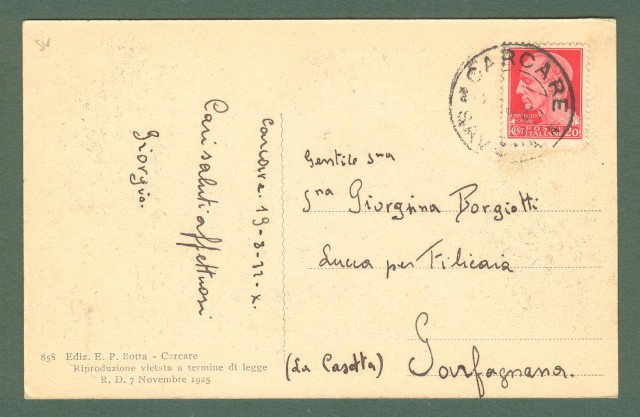 Carcare. 19-8-32-X.
Cari saluti affettuosi
Giorgio.
858 Ediz. E. P. Botta - Carcare
Riproduzione vietata a termine di legge
R. D. 7 Novembre 1925
CARCARE
CENT POSTE 20
ITALIANE
Gentile sma
Sna Giorgina Borgiotti
Lucca per Filicaia
(La Casetta) Garfagnana.